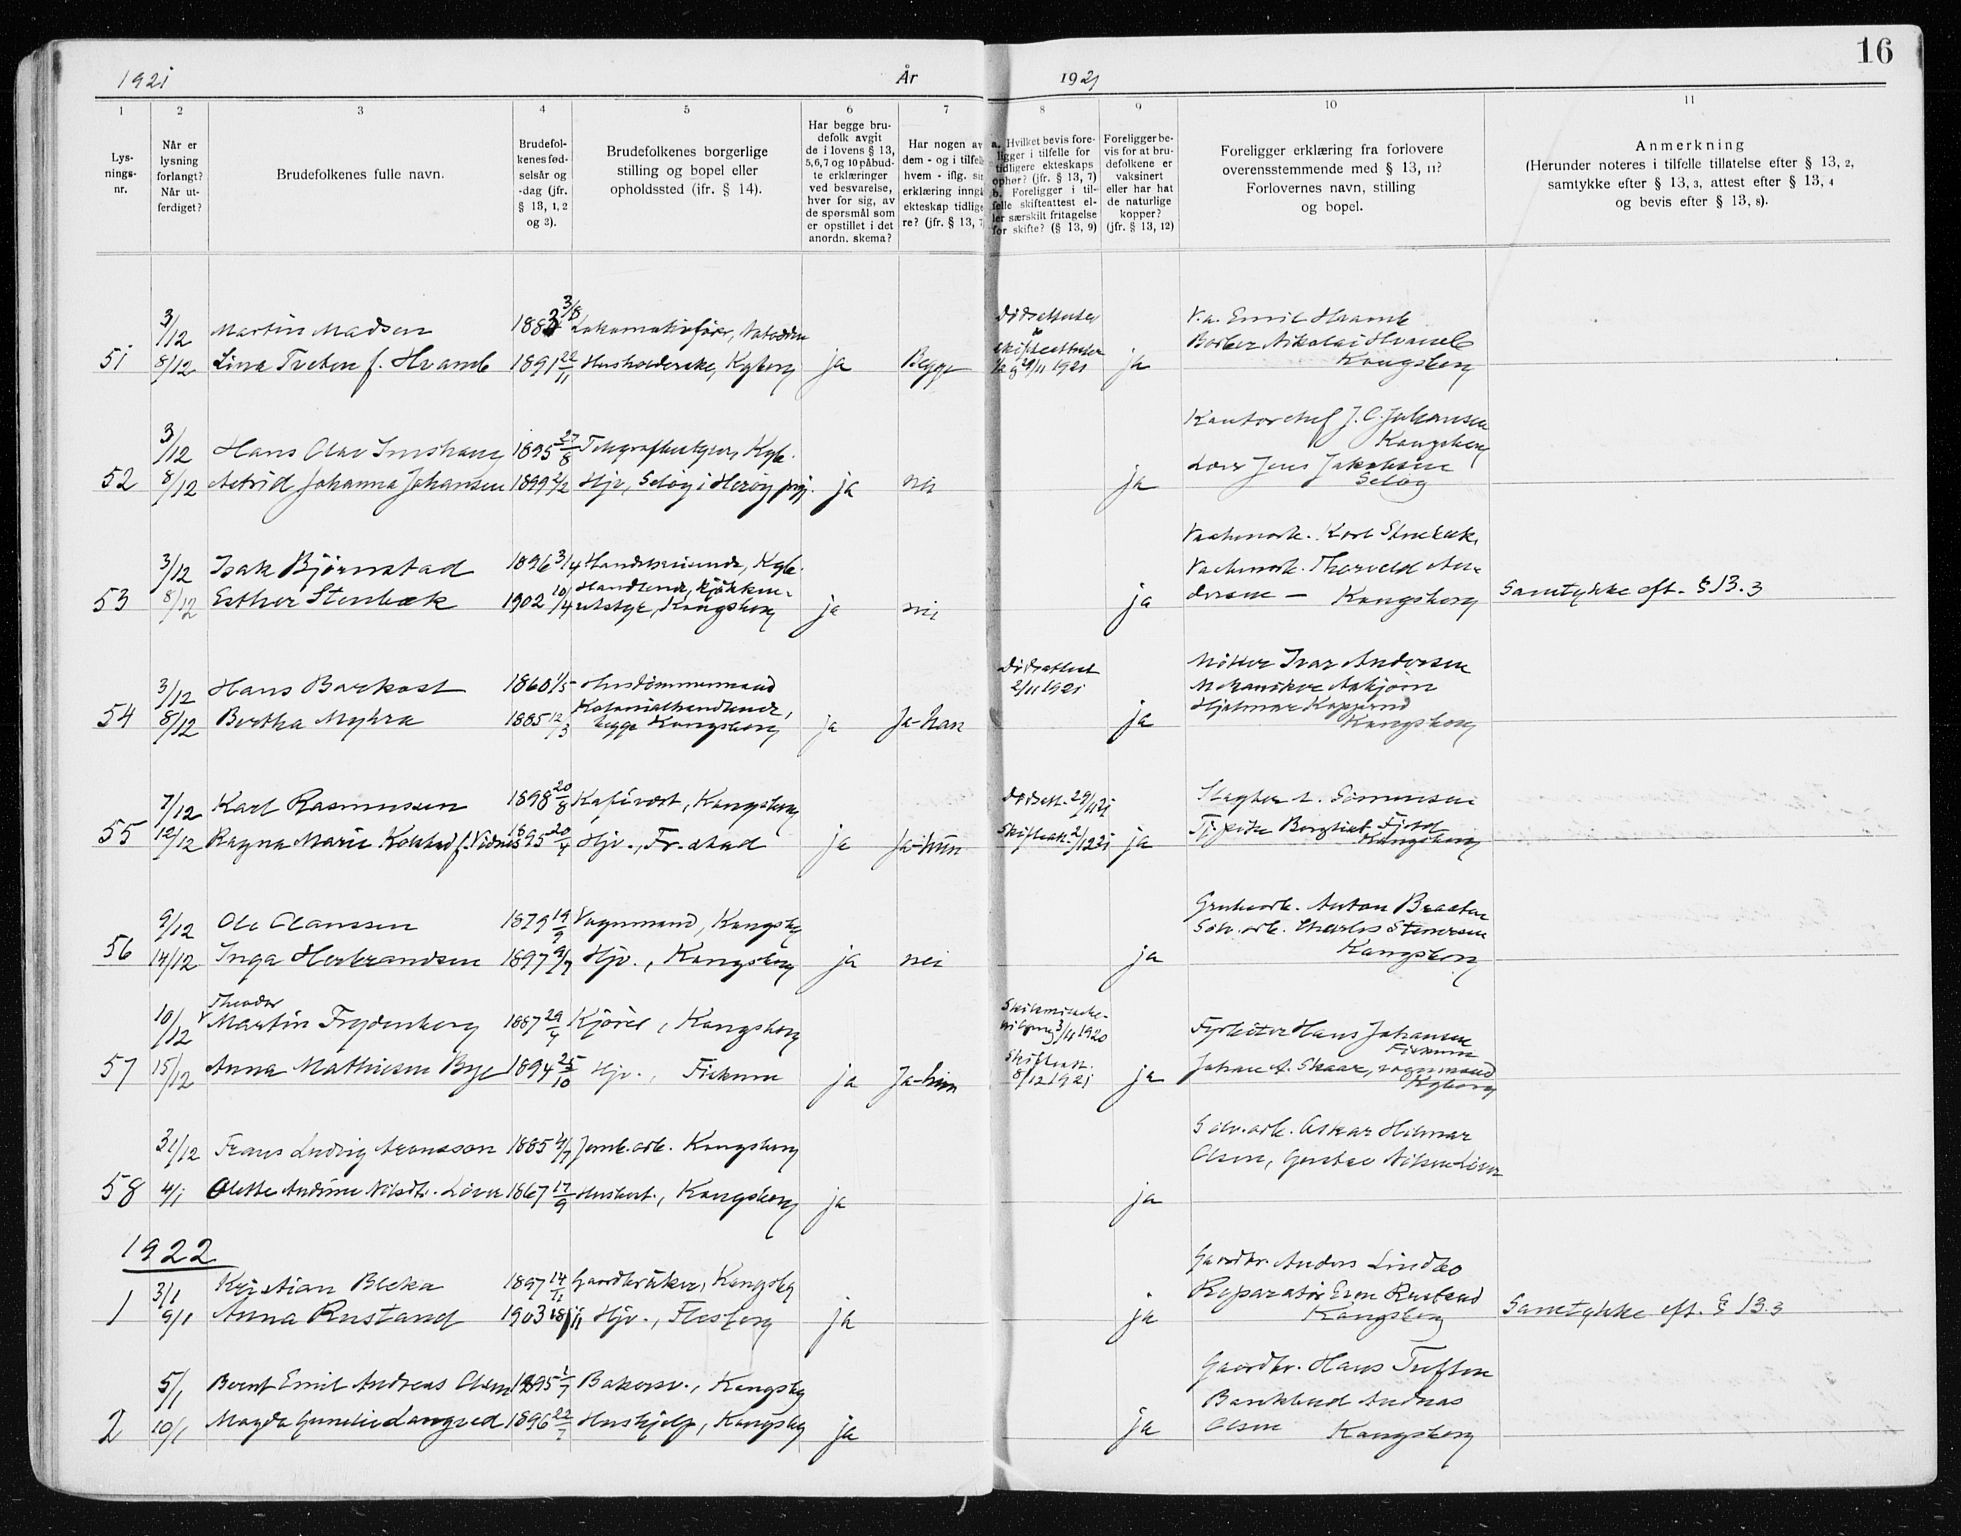 16
1921 År 1921
1 2 3 4 5 6 7 8 9 10 11
Lysningsnr.
Når er lysning forlangt? Når utferdiget?
Brudefolkenes fulle navn.
Brudefolkenes fødselsår og -dag (jfr. § 13, 1, 2 og 3).
Brudefolkenes borgerlige
stilling og bopel eller
opholdssted (ifr. § 14).
Har begge brudefolk avgit de i lovens § 13, 5,6,7 og 10 påbudte erklæringer ved besvarelse, hver for sig, av de spørsmål som er opstillet i det anordn. skema?
Har nogen av dem - og i tilfelle hvem - iflg. sin erklæring inngått ekteskap tidligere? (jfr. § 13, 7)
a. Hvilket bevis foreligger i tilfelle for tidligere ekteskaps ophør? (jfr. § 13, 7) b. Foreligger i tilfelle skifteattest eller særskilt fritagelse for skifte? (§ 13, 9)
Foreligger bevis for at brudefolkene er vaksinert eller har hat de naturlige kopper? (jfr. § 13, 12)
Foreligger erklæring fra forlovere
overensstemmende med § 13, 11?
Forlovernes navn, stilling
og bopel.
Anmerkning
(Herunder noteres i tilfelle tillatelse efter § 13, 2,
samtykke efter § 13, 3, attest efter § 13, 4
og bevis efter § 13, 8).
3/12 Martin Madsen 3/8 Lokomotivfører, Notodden V.a. Emil Hvamb
51 8/12 Lina Treten f. Hvamb 1891 22/11 Husholderske, Kgberg ja Begge 29/11 1921 ja Barber Nikolai Hvamb
Kongsberg
3/12 Hans Olav Imshaug 1895 27/8 Kgb. Kontorchef J. C. Johansen
Kongsberg
52 8/12 Astrid Johanna Johansen 1899 2/2 Hjv, Seløy i Herøy prgj. ja nei ja Jens Jakobsen
Seløy
3/12 Isak Bjørnstad 1896 3/4 Handelsreisende, Kgb. Karl Stenbæk
53 8/12 Esther Stenbæk 1902 10/4 Handlende, Kjøkkenutstyr, Kongsberg ja nei ja Thorvald Andersen — Kongsberg Samtykke eft. § 13.3
3/12 Hans Barkost 1860 1/5 Dødsattest 2/11 1921 Møller Ivar Andersen
54 8/12 Bertha Myhra 1885 12/3 Kolonialhandlende, begge Kongsberg ja Ja-han ja Mekaniker Asbjørn
Hjalmar
Kongsberg
7/12 Karl Rasmussen 1898 20/8 Kafévert, Kongsberg Dødsatt. 29/11 21 Slagter A. Simensen
55 12/12 Ragna Marie Kolstad f. 1895 20/4 Hjv., Fr.stad ja Ja-hun Skifteatt. 2/12 21 ja Tj.pike Bergliot Fjeld
Kongsberg
9/12 Ole Olaussen 1879 19/9 Vognmand, Kongsbg Grubearb. Anton Braaten
56 14/12 Inga Herbrandsen 1897 9/7 Hjv., Kongsberg ja nei ja Sølv.arb. Charles Stenersen
Kongsberg
Theodor
10/12 Martin Frydenberg 1887 29/4 Kjører, Kongsberg 3/11 1920 Fyrbøter Hans Johansen
Fiskum
57 15/12 Anna Mathiesen Bye 1894 25/10 Hjv., Fiskum ja Ja-hun Skifteatt. 8/12 1921 ja Johan A. Skaar, vognmand
Kgberg
31/12 Frans Ludvig Aronsson 1885 4/7 Jernb.arb. Kongsberg Sølv.arb. Oskar Hilmar
Olsen, Gustav Nilsen Løver
58 4/1 Olette Andrine Nilsdtr. Løver 1867 17/9 Husbest., Kongsberg ja ja
1922
3/1 Kristian Bleka 1897 14/11 Gaardbruker, Kongsbg Gaardbr. Anders Lindbo
1 9/1 Anna Rustand 1903 18/11 Hjv., Flesberg ja ja Reparatør Even Rustand
Kongsberg Samtykke eft. § 13.3
5/1 Bernt Emil Andreas Olsen 1895 1/7 Bakersv., Kongsbg Gaardbr. Hans Tuften
2 10/1 Magda Gunelie Langved 1896 22/7 Hushjelp, Kongsbg ja ja Bankbud Andreas
Olsen Kongsberg